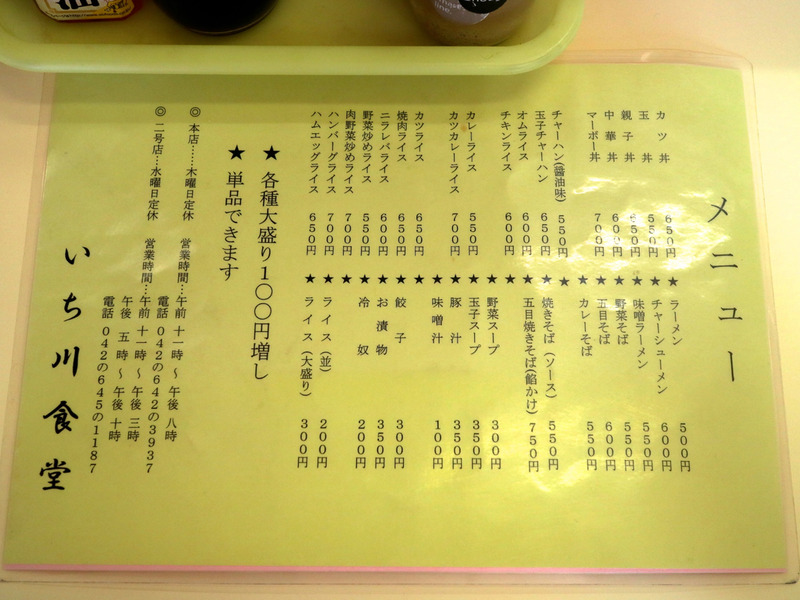 メニュー
カツ丼 650円
玉丼 550円
親子丼 600円
中華丼 600円
マーボー丼 700円
チャーハン(醤油味) 550円
玉子チャーハン 650円
オムライス 600円
チキンライス 600円
カレーライス 550円
カツカレーライス 700円
カツライス 650円
焼肉ライス 650円
ニラレバライス 600円
野菜炒めライス 550円
肉野菜炒めライス 700円
ハンバーグライス 700円
ハムエッグライス 650円
★ラーメン 500円
★チャーシューメン 600円
★味噌ラーメン 550円
★野菜そば 550円
★五目そば 600円
★カレーそば 550円
★焼きそば(ソース) 550円
★五目焼きそば(餡かけ) 750円
★野菜スープ 300円
★玉子スープ 350円
★豚汁 350円
★味噌汁 100円
★餃子 300円
★お漬物 350円
★冷奴 200円
★ライス(並) 200円
★ライス(大盛り) 300円
★ 各種大盛り100円増し
★ 単品できます
◎ 本店……木曜日定休 営業時間…午前 十一時～午後 八時
電話 042の642の3937
◎ 二号店…水曜日定休 営業時間…午前 十一時～午後 三時
午後 五時～午後 十時
電話 042の645の1187
いち川食堂